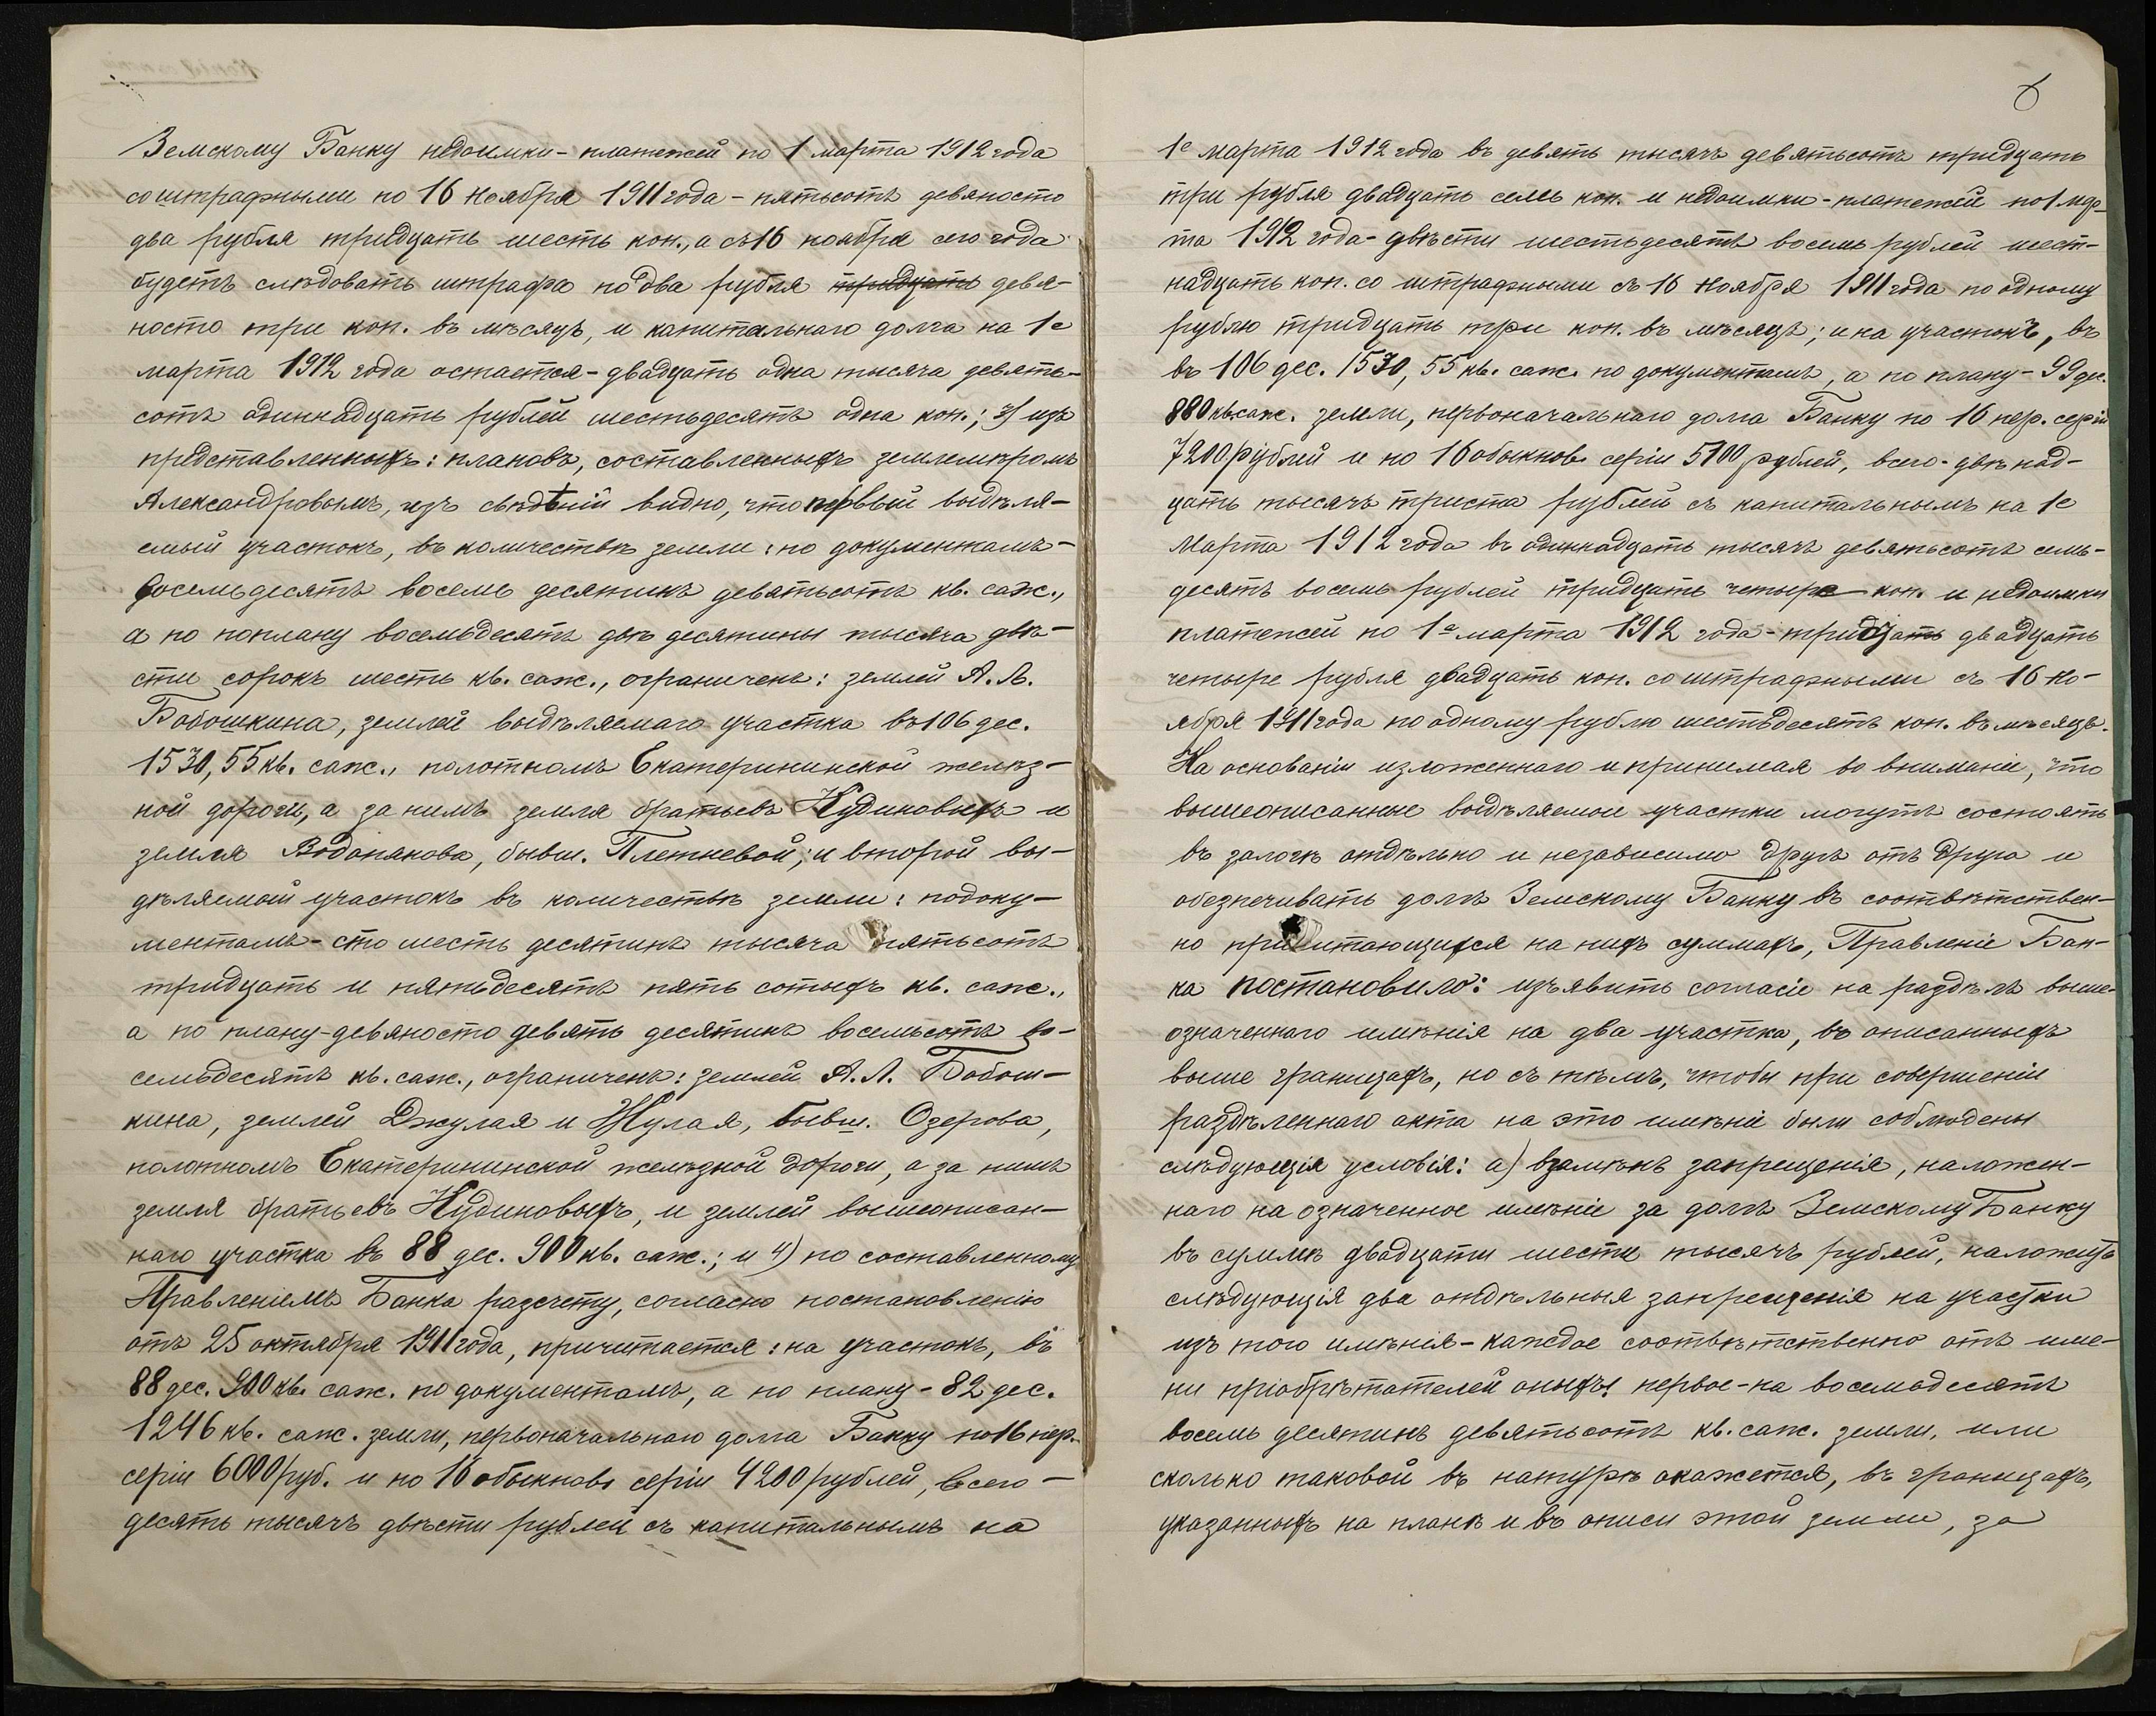 Земскому Банку недоимки - платежей по 1 марта 1912 года
со штрафными по 16 Ноября 1911 года - пятьсотъ девяносто
два рубля тридцать шесть коп., а съ 16 ноября сего года
будетъ слѣдовать штрафа по два рубля тридцать девя-
носто три коп. въ мѣсяцъ, и капитальнаго долга на 1е
марта 1912 года остается - двадцать одна тысяча девять-
сотъ одиннадцать рублей шестьдесятъ одна коп.; 3) изъ
представленныхъ: плановъ, составленныхъ землемѣромъ
Александровымъ, изъ свѣдѣній видно, что первый выдѣля-
емый участокъ, въ количествѣ земли: по документамъ -
восемьдесятъ восемь десятинъ девятьсотъ кв. саж.,
а по поплану восемьдесятъ двѣ десятины тысяча двѣ-
сти сорокъ шесть кв. саж., ограниченъ: землей А. Л.
Бабошкина, землей выдѣляемаго участка въ 106 дес.
1530,55 кв. саж., полотномъ Екатерининской желѣз-
ной дороги, а за нимъ земля братьевъ Нудиковыхъ и
земля Водопянова, бывш. Плетневой; и второй вы-
дѣляемый участокъ въ количествѣ земли: по доку-
ментамъ - сто шесть десятинъ тысяча пятьсотъ
тридцать и пятьдесятъ пять сотыхъ кв. саж.,
а по плану - девяносто девять десятинъ восемьсотъ во-
семьдесятъ кв. саж., ограниченъ: землей А. Л. Бабош-
кина, землей Джулая и Жулая, бывш. Озерова,
полотномъ Екатерининской желѣзной дороги, а за нимъ
земля братьевъ Нудиновыхъ, и землей вышеописан-
наго участка въ 88 дес. 900 кв. саж.; и 4) по составленному
Правленіемъ Банка разсчету, согласно постановленію
отъ 25 октября 1911 года, причитается: на участокъ, въ
88 дес. 900 кв. саж. по документамъ, а по плану - 82 дес.
1246 кв. саж. земли, первоначальнаго долга Банку по 16 пер.
серіи 6000 руб. и по 16 обыкнов. серіи 4200 рублей, всего -
десять тысячъ двѣсти рублей съ капитальнымъ на
1е марта 1912 года въ девять тысячъ девятьсотъ тридцать
три рубля двадцать семь коп. и недоимки - платежей по 1 мар-
та 1912 года - двѣсти шестьдесятъ восемь рублей шест-
надцать коп. со штрафными съ 16 Ноября 1911 года по одному
рублю тридцать три коп. въ мѣсяцъ; и на участокъ, въ
въ 106 дес. 1530,55 кв. саж. по документамъ, а по плану - 99 дес.
880 кв. саж. земли, первоначальнаго долга Банку по 16 пер. серіи
7200 рублей и по 16 обыкнов. серіи 5100 рублей, всего - двѣнад-
цать тысячъ триста рублей съ капитальнымъ на 1е
Марта 1912 года въ одиннадцать тысячъ девятьсотъ семь-
десятъ восемь рублей тридцать четыре коп. и недоимки
платежей по 1е марта 1912 года - тридцать двадцать
четыре рубля двадцать коп. со штрафными съ 16 Но-
ября 1911 года по одному рублю шестьдесятъ коп. въ мѣсяцъ.
На основаніи изложеннаго и принимая во вниманіе, что
вышеописанные выдѣляемые участки могутъ состоять
въ залогѣ отдѣльно и независимо другъ отъ друга и
обезпечивать долгъ Земскому Банку въ соотвѣтствен-
но причитающихся на нихъ суммахъ, Правленіе Бан-
ка постановило: изъявить согласіе на раздѣлъ выше-
означеннаго имѣнія на два участка, въ описанныхъ
выше границахъ, но съ тѣмъ, чтобы при совершеніи
раздѣленнаго акта на это имѣніе были соблюдены
слѣдующія условія: а) взамѣнъ запрещенія, наложен-
наго на означенное имѣніе за долгъ Земскому Банку
въ суммѣ двадцати шести тысячъ рублей, наложить
слѣдующія два отдѣльныя запрещенія на участки
изъ того имѣнія - каждое соотвѣтственно отъ име-
ни пріобрѣтателей оныхъ: первое - на восемьдесятъ
восемь десятинъ девятьсотъ кв. саж. земли, или
сколько таковой въ натурѣ окажется, въ границахъ,
указанныхъ на планѣ и въ описи этой земли, за